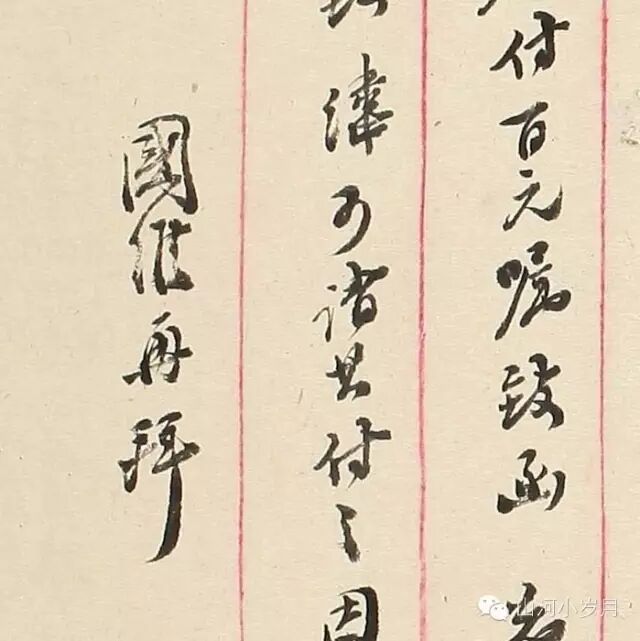 付百元嘱致函
緯可請其付之因
國維再拜
山河小岁月